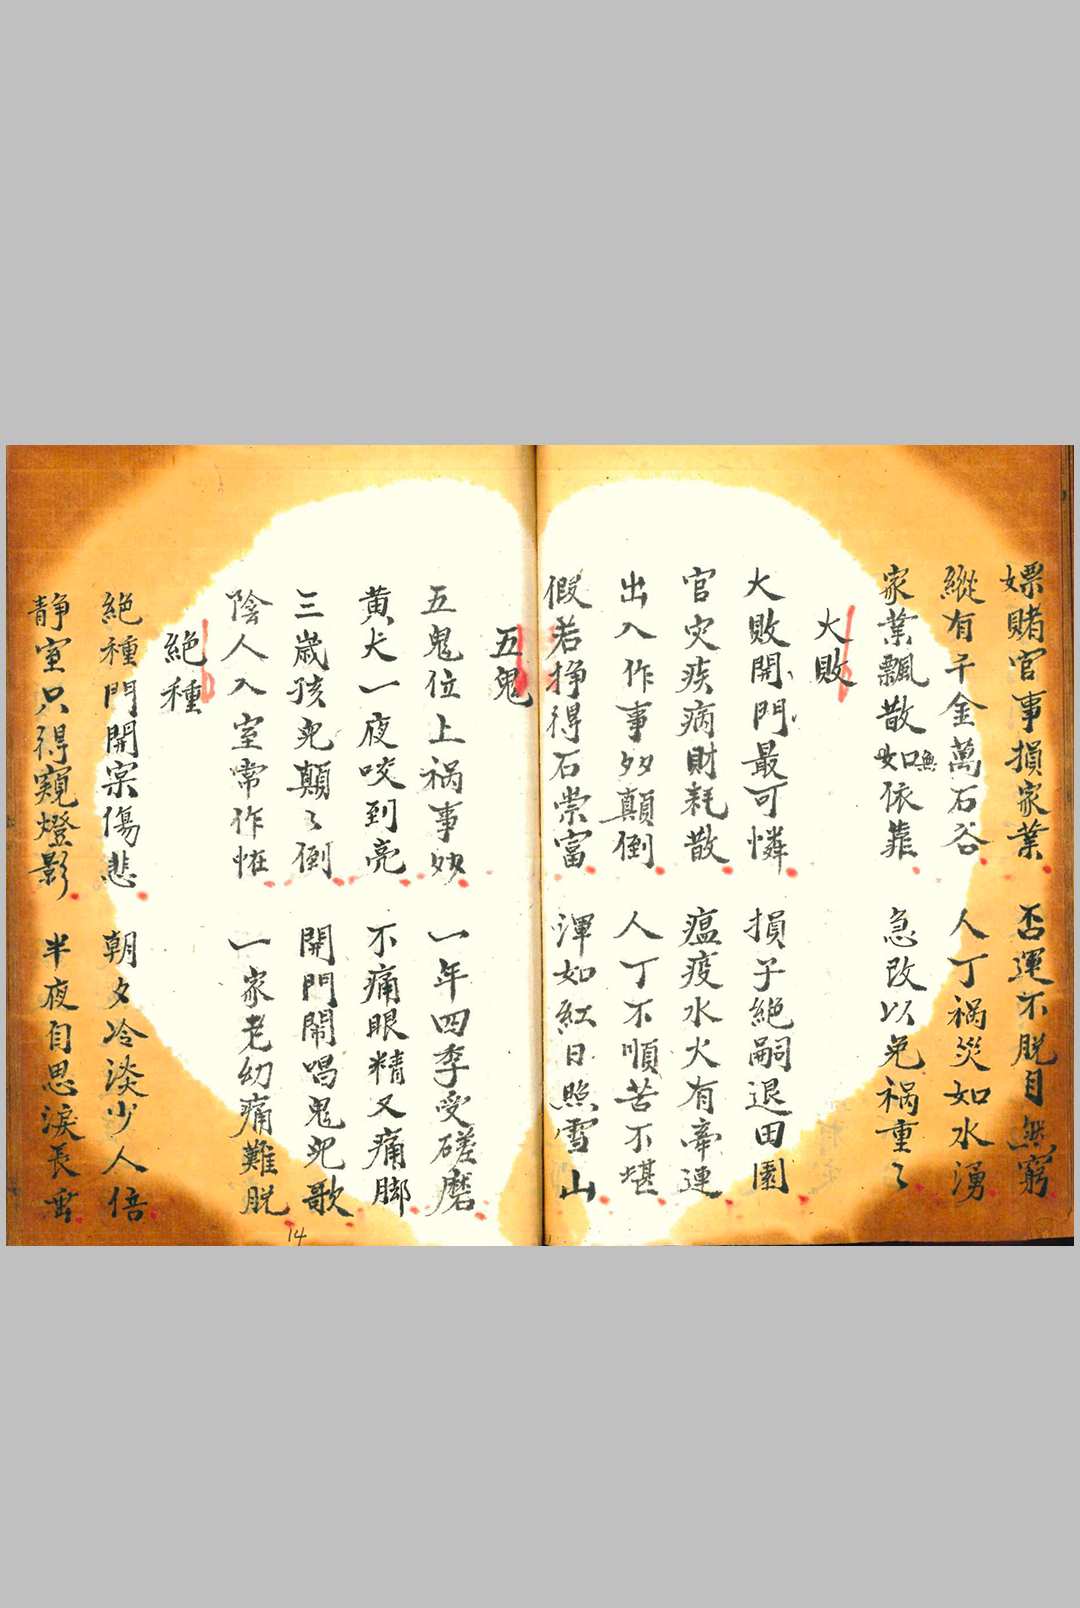 嫖賭官事損家業 否運不脫目無窮
縱有千金萬石谷 人丁禍災如水湧
家業飄散如無依靠 急改以免禍重〻
大敗
大敗開門最可憐 損子絕嗣退田園
官灾疾病財耗散 瘟疫水火有牽連
出入作事多顛倒 人丁不順苦不堪
假若掙得石崇富 渾如紅日照雪山
五鬼
五鬼位上禍事多 一年四季受磋磨
黃犬一夜咬到亮 不痛眼精又痛脚
三歲孩兒顛〻倒 開門鬧唱鬼兒歌
陰人入室常作怪 一家老幼痛難脫
絕種
絕種門開寀傷悲 朝夕冷淡少人倍
靜室只得窺燈影 半夜自思淚長垂
14